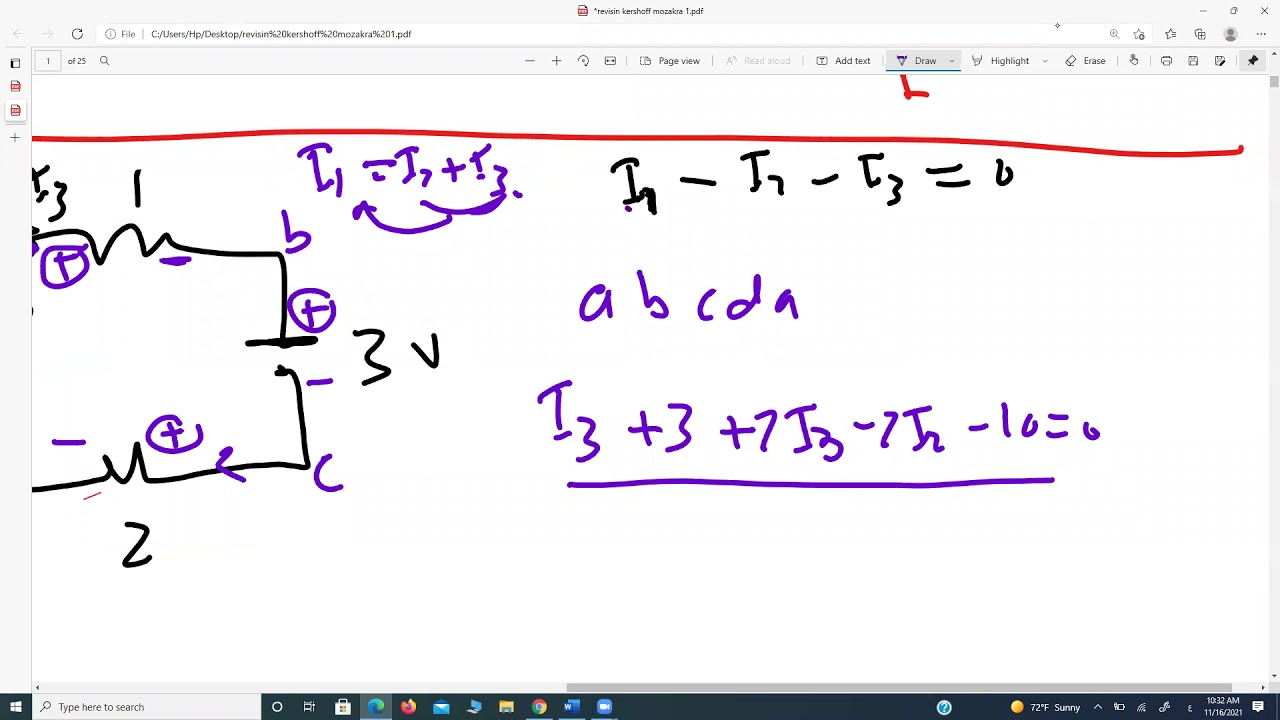 *revisin kershoff mozakra 1.pdf
File
C:/Users/Hp/Desktop/revisin%20kershoff%20mozakra%201.pdf
1 of 25
Page view
Read aloud
Add text
Draw
Highlight
Erase
I1 = I2 + I3
I1 - I2 - I3 = 0
I3
1
b
+
-
a b c d a
+
3 V
-
I3 + 3 + 7I3 - 7I2 - 10 = 0
-
+
c
2
Type here to search
72°F Sunny
10:32 AM
11/16/2021